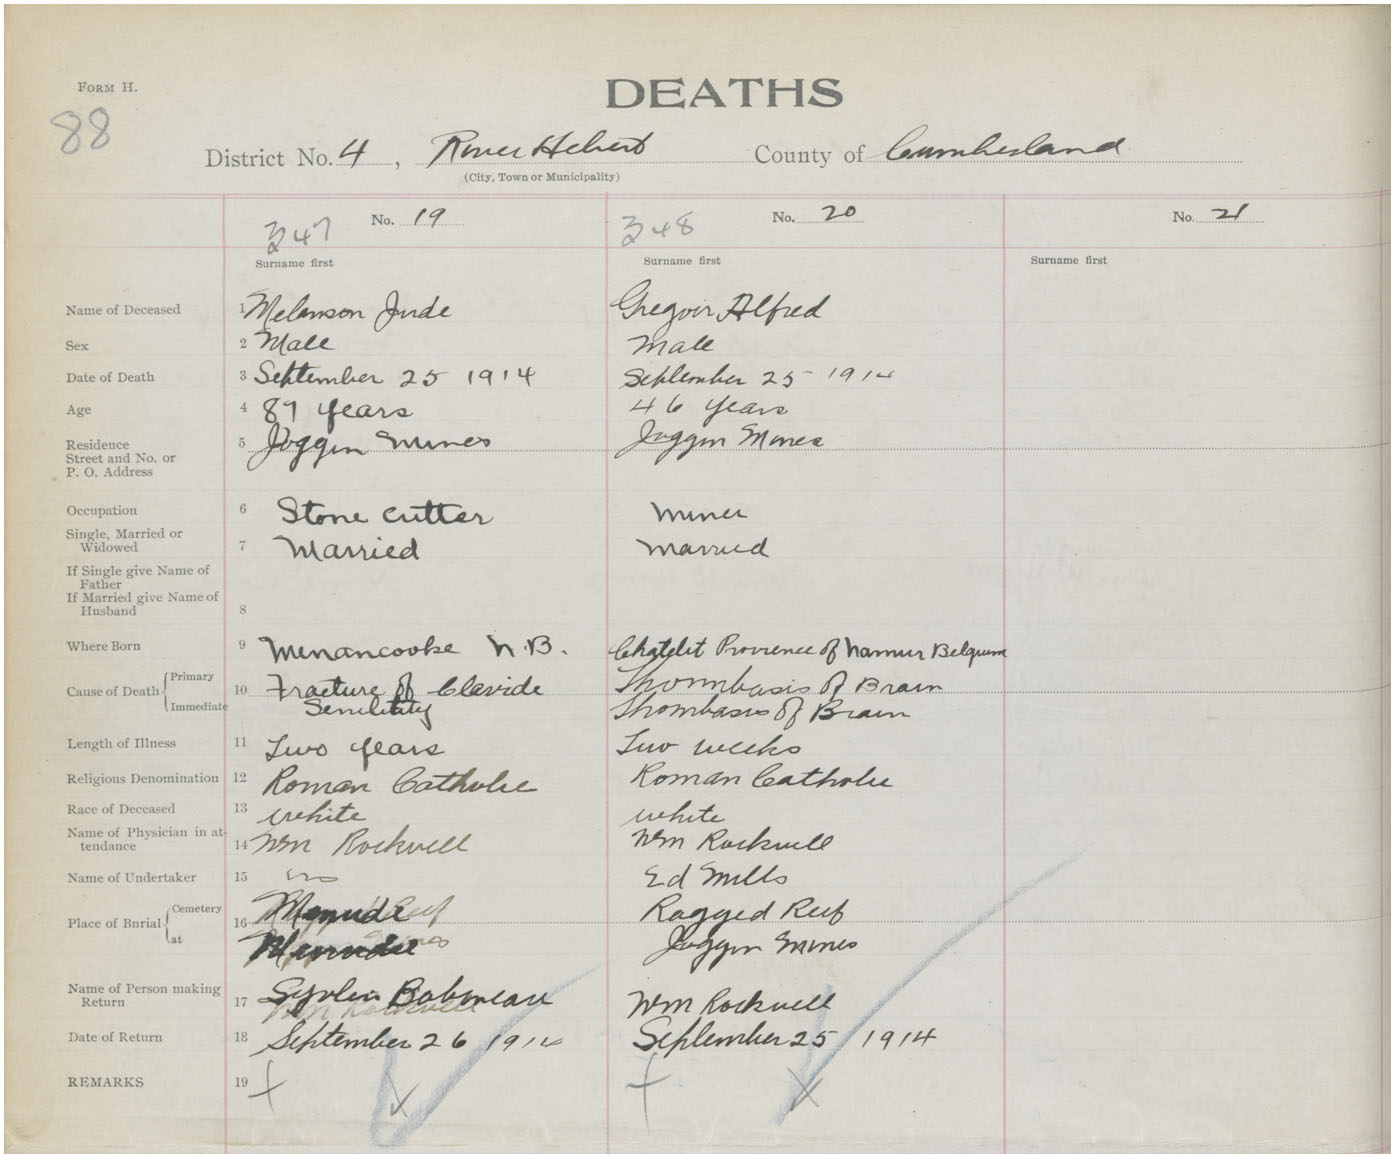 FORM H.
DEATHS
88
District No. 4, River Hebert County of Cumberland
(City, Town or Municipality)
No. 19 No. 20 No. 21
347 348
Surname first Surname first Surname first
Name of Deceased 1 Melanson Jude Gregoir Alfred
Sex 2 Male Male
Date of Death 3 September 25 1914 September 25 1914
Age 4 87 years 46 years
Residence
Street and No. or
P. O. Address 5 Joggin Mines Joggin Mines
Occupation 6 Stone cutter Miner
Single, Married or
Widowed 7 Married Married
If Single give Name of
Father
If Married give Name of
Husband 8
Where Born 9 Menancooke N.B. Chatelit Provience of Namur Belgium
Cause of Death Primary 10 Fracture of Clavide Thrombasis of Brain
Immediate Senility Thombasis of Brain
Length of Illness 11 Two years Two weeks
Religious Denomination 12 Roman Catholic Roman Catholic
Race of Deceased 13 white white
Name of Physician in at-
tendance 14 Wm Rockwell Wm Rockwell
Name of Undertaker 15 no Ed Mills
Place of Burial Cemetery 16 Menudie Ragged Reef
at Menudie Joggin Mines
Name of Person making
Return 17 Babineau Wm Rockwell
Date of Return 18 September 26 1914 September 25 1914
REMARKS 19